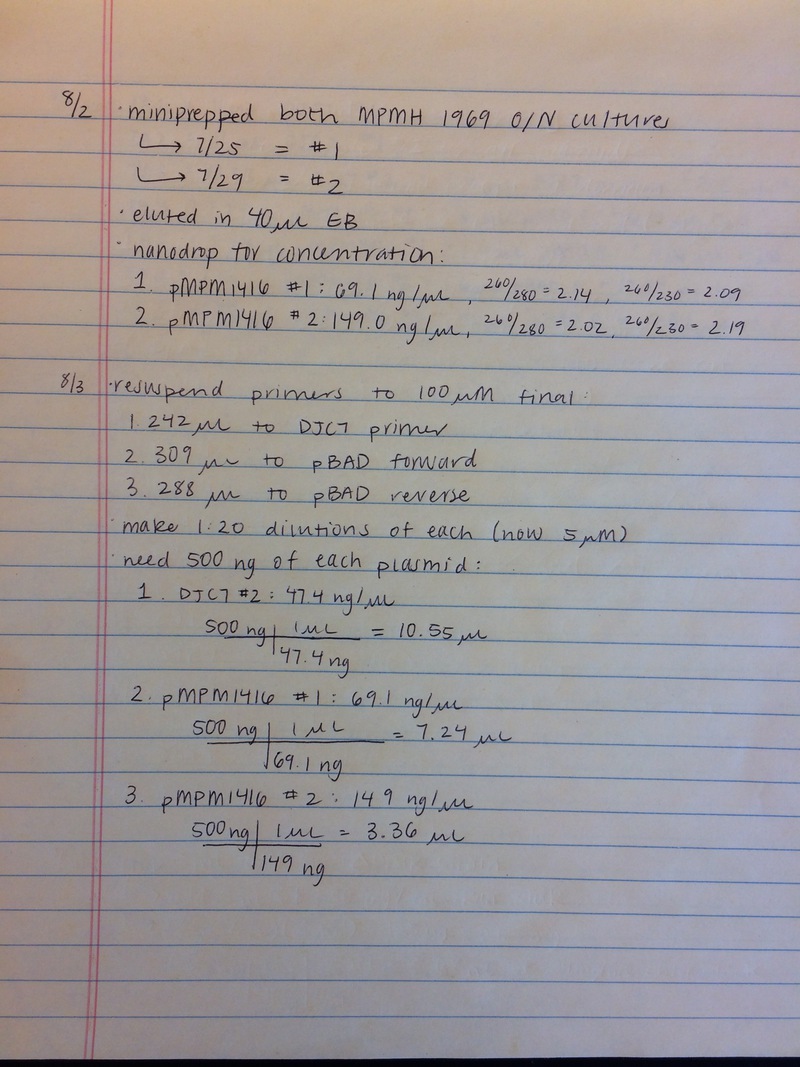 8/2 · miniprepped both MPMH 1969 O/N cultures
↳ 7/25 = #1
↳ 7/29 = #2
· eluted in 40 μL EB
· nanodrop for concentration:
1. pMPM1416 #1: 69.1 ng/μL, 260/280 = 2.14, 260/230 = 2.09
2. pMPM1416 #2: 149.0 ng/μL, 260/280 = 2.02, 260/230 = 2.19
8/3 · resuspend primers to 100 μM final:
1. 242 μL to DJC7 primer
2. 309 μL to pBAD forward
3. 288 μL to pBAD reverse
· make 1:20 dilutions of each (now 5 μM)
· need 500 ng of each plasmid:
1. DJC7 #2: 47.4 ng/μL
500 ng | 1 μL = 10.55 μL
| 47.4 ng
2. pMPM1416 #1: 69.1 ng/μL
500 ng | 1 μL = 7.24 μL
| 69.1 ng
3. pMPM1416 #2: 149 ng/μL
500 ng | 1 μL = 3.36 μL
| 149 ng